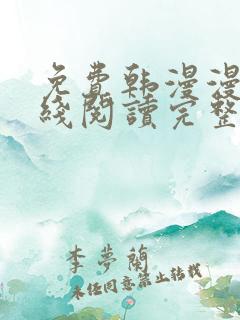 免費韩漫漫
綫閱讀完整
李夢蘭
未经同意禁止转载